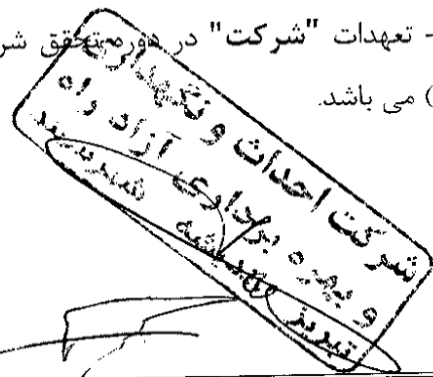 - تعهدات "شرکت" در دوره تحقق شر
) می باشد.
شرکت احداث و نگهداری
و بهره برداری آزاد راه
تبریز